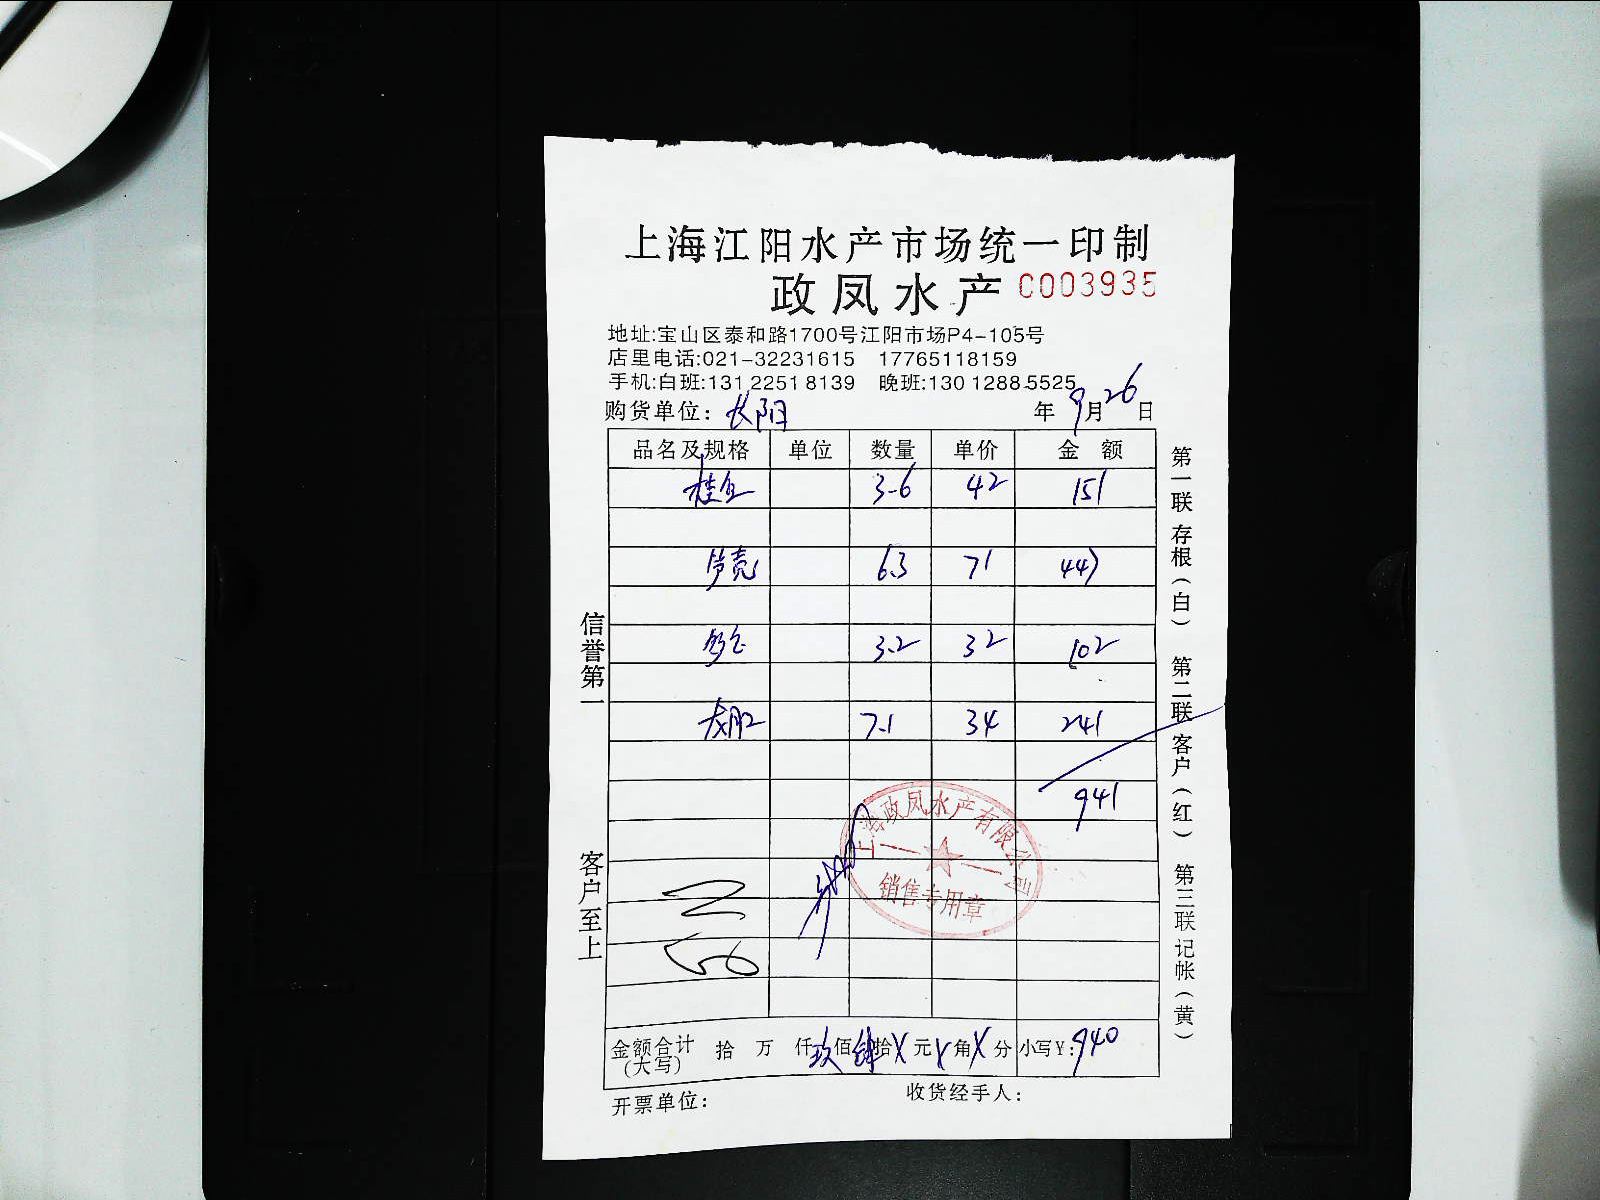 上海江阳水产市场统一印制
政凤水产 C003935
地址:宝山区泰和路1700号江阳市场P4-105号
店里电话:021-32231615 17765118159
手机:白班:131 2251 8139 晚班:130 1288 5525
购货单位: 长阳 年 9月26日
品名及规格 单位 数量 单价 金 额
桂鱼 3.6 42 151
6.3 71 447
3.2 32 102
7.1 34 241
941
上海政凤水产有限公司
销售专用章
金额合计(大写) 拾 万 仟玖佰肆拾X元X角X分 小写¥:940
开票单位: 收货经手人:
信誉第一
客户至上
第一联 存根(白) 第二联 客户(红) 第三联 记帐(黄)